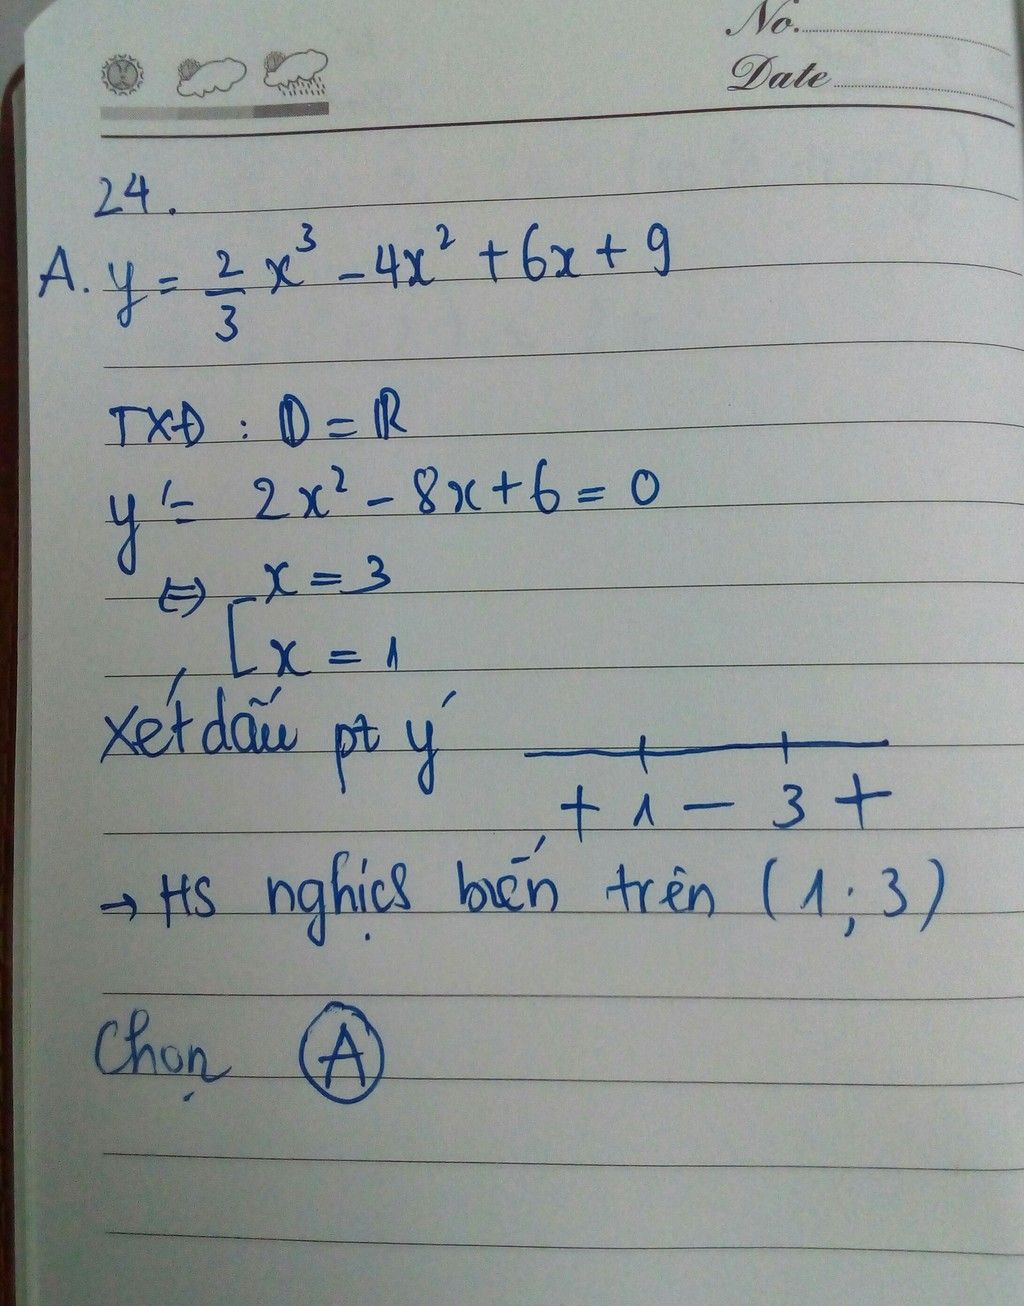 No.
Date
24.
A. y = 2/3 x³ - 4x² + 6x + 9
TXĐ : D = ℝ
y' = 2x² - 8x + 6 = 0
⇔ [ x = 3
x = 1
Xét dấu pt y'
+ 1 - 3 +
→ HS nghịch biến trên (1; 3)
Chọn A